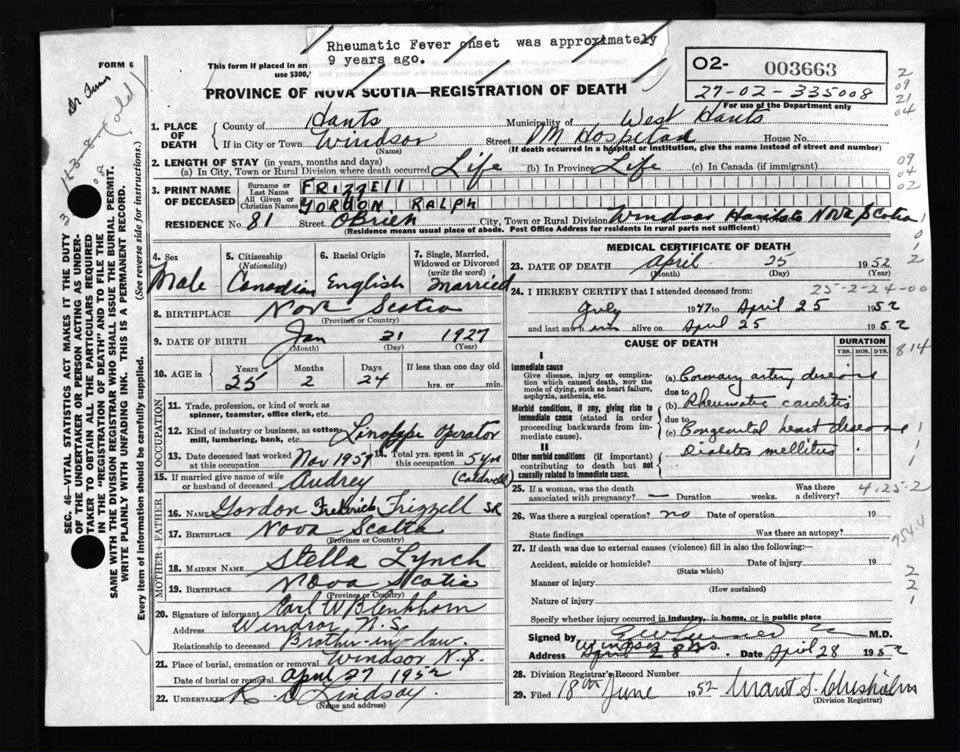 Rheumatic Fever onset was approximately
9 years ago.
FORM 6
This form if placed in an
use $300,
O2- 003663
27-02-335008
For use of the Department only
PROVINCE OF NOVA SCOTIA—REGISTRATION OF DEATH
2
09
21
04
09
04
02
1. PLACE OF DEATH
County of Hants Municipality of West Hants
If in City or Town Windsor Street PM Hospital House No.
(Name) (If death occurred in a hospital or institution, give the name instead of street and number)
2. LENGTH OF STAY (in years, months and days)
(a) In City, Town or Rural Division where death occurred Life (b) In Province Life (c) In Canada (if immigrant)
3. PRINT NAME OF DECEASED
Surname or Last Name FRIZZELL
All Given or Christian Names GORDON RALPH
RESIDENCE No. 81 Street OBrien City, Town or Rural Division Windsor Hants Co Nova Scotia
(Residence means usual place of abode. Post Office Address for residents in rural parts not sufficient)
4. Sex Male
5. Citizenship (Nationality) Canadian
6. Racial Origin English
7. Single, Married, Widowed or Divorced (write the word) Married
8. BIRTHPLACE Nova Scotia
(Province or Country)
9. DATE OF BIRTH Jan 31 1927
(Month) (Day) (Year)
10. AGE in Years Months Days If less than one day old
25 2 24 hrs. or min.
OCCUPATION
11. Trade, profession, or kind of work as spinner, teamster, office clerk, etc.
12. Kind of industry or business, as cotton mill, lumbering, bank, etc. Linotype Operator
13. Date deceased last worked at this occupation Nov 1951 14. Total yrs. spent in this occupation 5 yrs
15. If married give name of wife or husband of deceased Audrey (Caldwell)
FATHER
16. NAME Gordon Frederick Frizzell SR
17. BIRTHPLACE Nova Scotia
(Province or Country)
MOTHER
18. MAIDEN NAME Stella Lynch
19. BIRTHPLACE Nova Scotia
(Province or Country)
20. Signature of informant Earl W Blenkhorn
Address Windsor N.S.
Relationship to deceased Brother-in-law.
21. Place of burial, cremation or removal Windsor N.S.
Date of burial or removal April 27 1952
22. UNDERTAKER R. Lindsay.
(Name and address)
MEDICAL CERTIFICATE OF DEATH
23. DATE OF DEATH April 25 1952
(Month) (Day) (Year)
25-2-24-00
24. I HEREBY CERTIFY that I attended deceased from:
July 1947 to April 25 1952
and last saw him alive on April 25 1952
CAUSE OF DEATH
DURATION
YRS. MOS. DYS.
814
I
Immediate cause
Give disease, injury or complication which caused death, NOT the mode of dying, such as heart failure, asphyxia, asthenia, etc.
(a) Coronary artery disease
due to
Morbid conditions, if any, giving rise to immediate cause (stated in order proceeding backwards from immediate cause).
(b) Rheumatic carditis
due to
(c) Congenital heart disease
II
Other morbid conditions (if important) contributing to death but not causally related to immediate cause.
Diabetes mellitus
25. If a woman, was the death associated with pregnancy? — Duration weeks. Was there a delivery?
4.25.2
26. Was there a surgical operation? no Date of operation 19
State findings Was there an autopsy?
754.4
27. If death was due to external causes (violence) fill in also the following:—
Accident, suicide or homicide? Date of injury 19
(State which)
Manner of injury
(How sustained)
Nature of injury
Specify whether injury occurred in industry, in home, or in public place
Signed by M.D.
Address Windsor N.S. Date April 28 1952
28. Division Registrar's Record Number
29. Filed 18th June 1952 Grant S. Chisholm
(Division Registrar)
SEC. 46—VITAL STATISTICS ACT MAKES IT THE DUTY
OF THE UNDERTAKER OR PERSON ACTING AS UNDER-
TAKER TO OBTAIN ALL THE PARTICULARS REQUIRED
IN THE "REGISTRATION OF DEATH" AND TO FILE THE
SAME WITH THE DIVISION REGISTRAR WHO SHALL ISSUE THE BURIAL PERMIT.
WRITE PLAINLY WITH UNFADING INK. THIS IS A PERMANENT RECORD.
Every item of information should be carefully supplied. (See reverse side for instructions.)